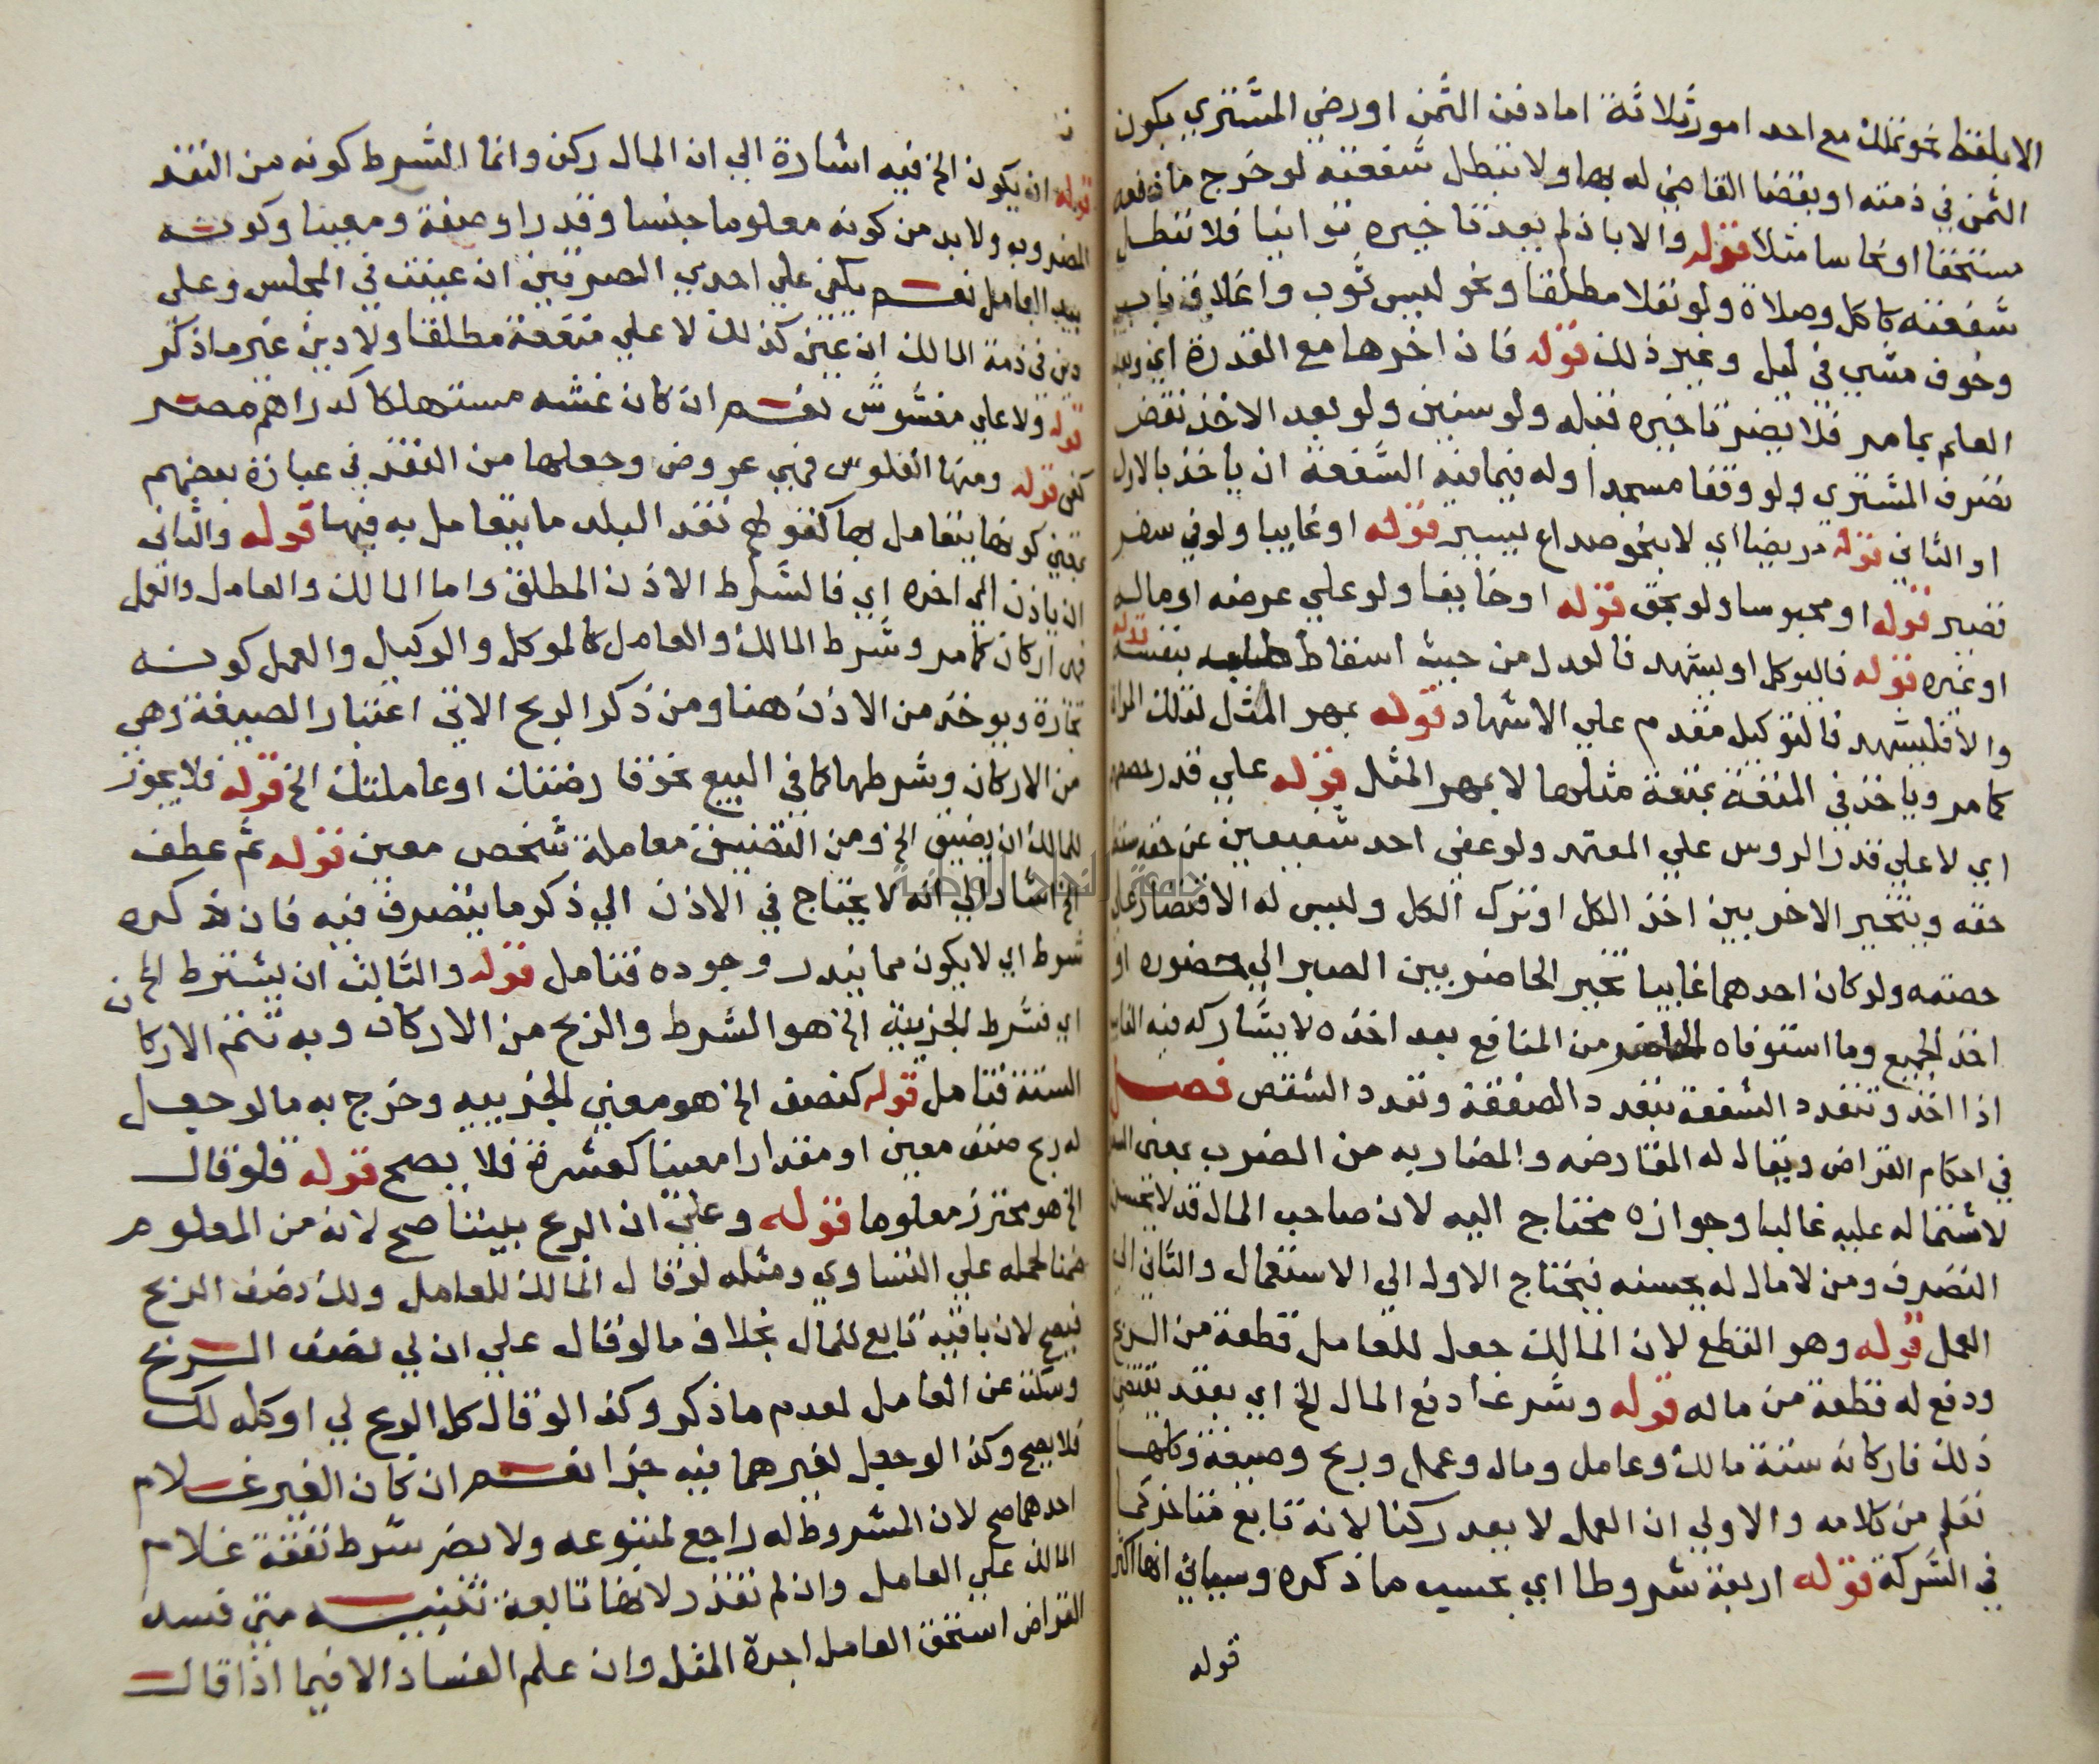 الا بلفظ نحو تملكت مع احد امور ثلاثة اما دفن الثمن او رضي المشتري بكون
الثمن في ذمته او بقضا القاضي له بها ولا تبطل شفعته لو خرج ما دفعه
مستحقا او نحاسا مثلا قوله والا بان لم يعد تاخيره توانيا فلا تبطل
شفعته كاكل وصلاة ولو نفلا مطلقا ونحو لبس ثوب واغلاق باب
وخوف مشي في ليل وغير ذلك قوله فان اخرها مع القدرة اي وبعد
العلم بما مر فلا يضر تاخيره قبله ولو سنين ولو بعد الاخذ نقض
تصرف المشتري ولو وقفا مسجدا وله فيما فيه الشفعة ان ياخذ بالاول
او الثاني قوله مريضا اي لا بنحو صداع يسير قوله او غايبا ولو في سفر
قصير قوله او محبوسا ولو بحق قوله او خايفا ولو علي عرضه او ماله
او غيره قوله فاليوكل او يشهد فالعدل من حيث اسقاط طلبه بنفسه قوله
والا فليشهد فالتوكيل مقدم علي الاشهاد قوله بمهر المثل لتلك المراة
كما مر وياخذ في المتعة بمتعة مثلها لا بمهر المثل قوله علي قدر حصصهم
اي لا علي قدر الروس علي المعتمد ولو عفي احد شفيعين عن حقه سقط
حقه ويتخير الاخر بين اخذ الكل او ترك الكل وليس له الاقتصار علي
حصته ولو كان احدهما غايبا تخير الحاضر بين الصبر الي حضوره او
اخذ الجميع وما استوفاه الحاضر من المنافع بعد اخذه لا يشاركه فيه الغايب
اذا اخذ وتتعدد الشفعة بتعدد الصفقة وتعدد الشقص فصل
في احكام القراض ويقال له المقارضه والمضاربه من الضرب بمعني السفر
لاشتماله عليه غالبا وجوازه محتاج اليه لان صاحب المال قد لا يحسن
التصرف ومن لا مال له يحسنه فيحتاج الاول الي الاستعمال والثاني الي
العمل قوله وهو القطع لان المالك جعل للعامل قطعة من الربح
ودفع له قطعة من ماله قوله وشرعا دفع المال الخ اي بعقد يقتضي
ذلك فاركانه ستة مالك وعامل ومال وعمل وربح وصيغة وكلها
تعلم من كلامه والاولي ان العمل لا يعد ركنا لانه تابع متاخر كما
في الشركة قوله اربعة شروط اي بحسب ما ذكره وسياتي انها اكثر
قوله
قوله ان يكون الخ فيه اشارة الي ان المال ركن وانما الشرط كونه من النقد
المضروب ولا بد من كونه معلوما جنسا وقدرا وصفة ومعينا وكونه
بيد العامل نعم يكفي علي احدي الصرتين ان عينت في المجلس وعلي
دين في ذمة المالك ان عين كذلك لا علي منفعة مطلقا ولا دين غير ما ذكر
قوله ولا علي مغشوش نعم ان كان غشه مستهلكا كدراهم مصر
كفي قوله ومنها الفلوس فهي عروض وجعلها من النقد في عبارة بعضهم
بمعني كونها يتعامل بها كقولهم نقد البلد ما يتعامل به فيها قوله والثاني
ان ياذن الي اخره اي فالشرط الاذن المطلق واما المالك والعامل والعمل
فهي اركان كما مر وشرط المالك والعامل كالموكل والوكيل والعمل كونه
تجارة ويوخذ من الاذن هنا ومن ذكر الربح الاتي اعتبار الصيغة وهي
من الاركان وشرطها كما في البيع نحو قارضتك او عاملتك الخ قوله فلا يجوز
للمالك ان يضيق الخ ومن التضييق معاملة شخص معين قوله ثم عطف
الخ اشار الي انه لا يحتاج في الاذن الي ذكر ما يتصرف فيه فان ذكره
شرط اي لا يكون مما يندر وجوده فتامل قوله والثالث ان يشترط الخ
اي فشرط الجزيية الخ هو الشرط والربح من الاركان وبه تتم الاركان
الستة فتامل قوله كنصف الخ هو معني الجزييه وخرج به ما لو جعل
له ربح صنف معين او مقدارا معينا كعشرة فلا يصح قوله فلو قال
الخ هو محترز معلوما قوله وعلي ان الربح بيننا صح لانه من المعلوم
ضمنا لحمله علي التساوي ومثله لو قال المالك للعامل ولك نصف الربح
فيصح لان باقيه تابع للمال بخلاف ما لو قال علي ان لي نصف الربح
وسكت عن العامل لعدم ما ذكر وكذا لو قال كل الربح لي او كله لك
فلا يصح وكذا لو جعل لغيرهما فيه جزا نعم ان كان الغير غلام
احدهما صح لان المشروط له راجع لمتبوعه ولا يضر شرط نفقة غلام
المالك علي العامل وان لم تقدر لانها تابعة تنبيه متي فسد
القراض استحق العامل اجرة المثل وان علم الفساد الا فيما اذا قال
جامعة النجاح الوطنية